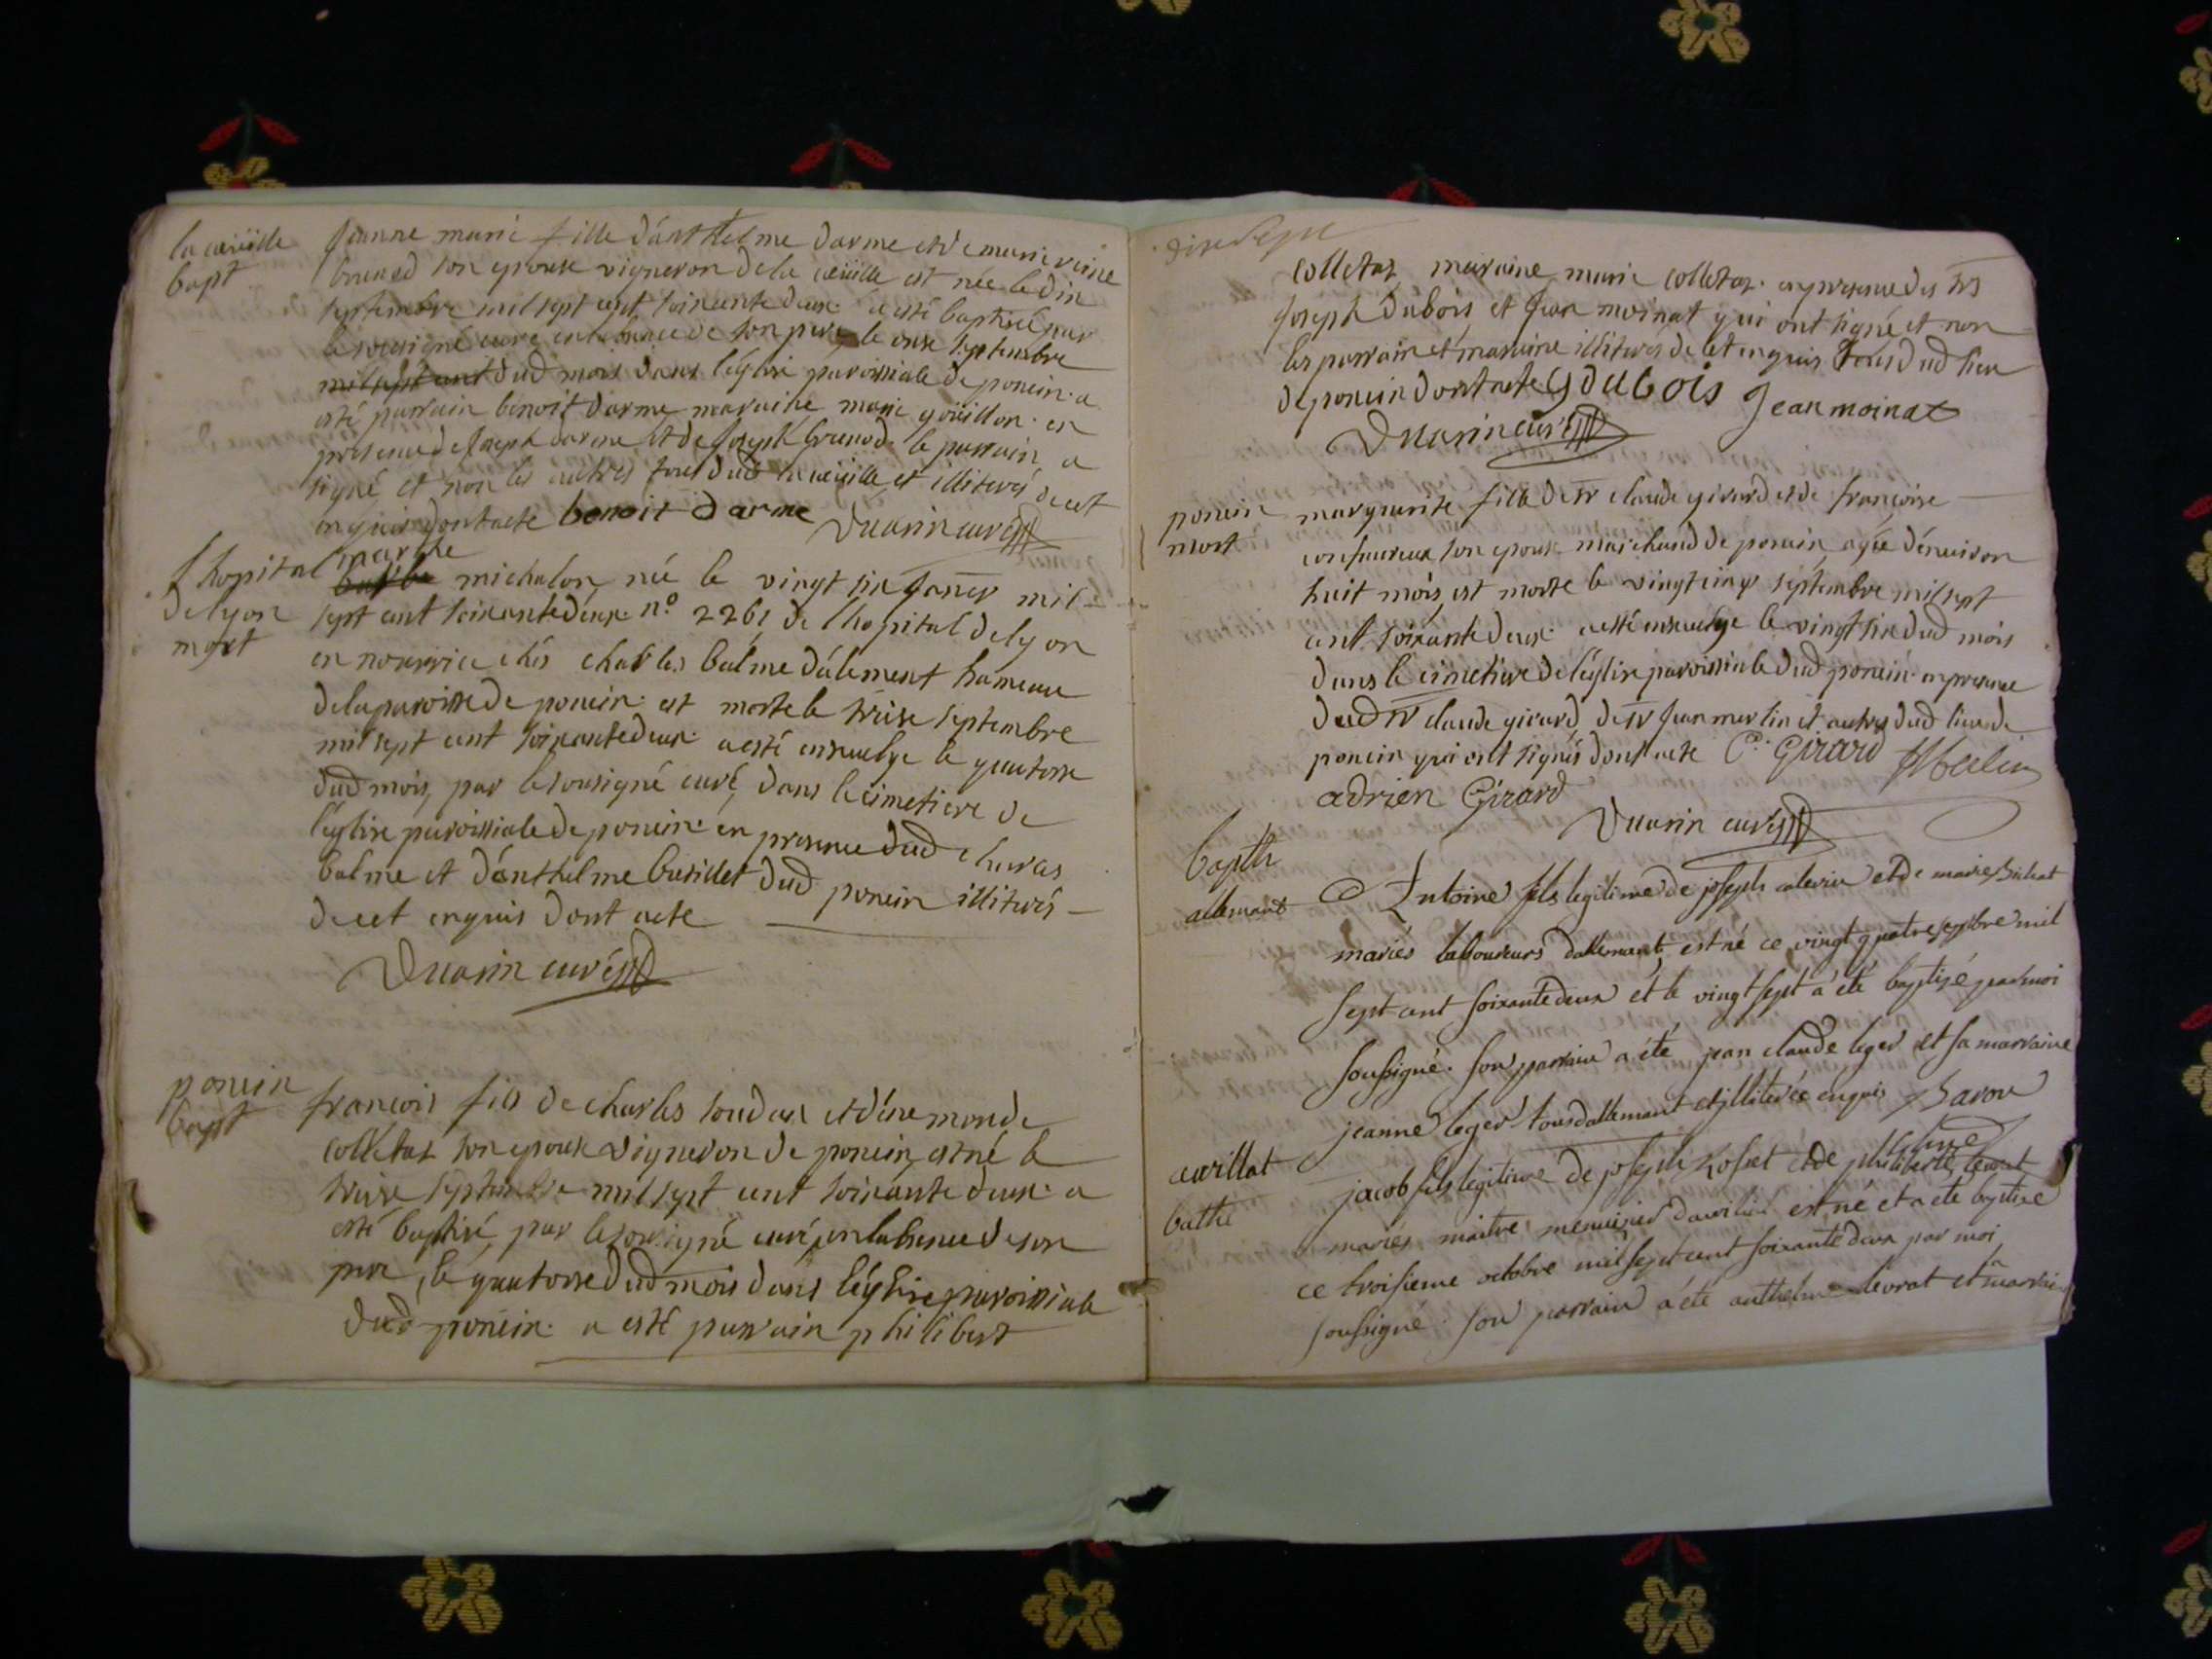 la cueïlle
bapt
Jeanne marie fille d'anthelme darme et de marie reine
brunod son epouse vigneron de la cueille est née le dix
septembre mil sept cent soixante deux a esté baptisé par
le sousigné curé en labsence de son pere le onze septembre
mil sept cent dud mois dans l'église paroissiale de poncin a
esté parrain benoit darme maraine marie goüillon en
presence de Joseph darme et de Joseph brunod le parrain a
signé et non les autres tous dud la cueille et illiterés de cet
enquis dont acte benoit darme Duarin curé
l'hopital
de lyon
mort
marthe
michalon née le vingt six janer mil
sept cent soixante deux n° 2261 de lhopital de lyon
en nourrice chés charles balme d'alement hameau
de la paroisse de poncin est morte le treize septembre
mil sept cent soixante deux a esté ensevelye le quatorse
dud mois, par le sousigné curé, dans le cimetiere de
l'eglise paroissiale de poncin en presence dud charles
balme et d'anthelme dud poncin illiterés
de cet enquis dont acte
Duarin curé
poncin
bapt
francois fils de charles et d'enemonde
colletaz son epouse vigneron de poncin, est né le
treize septembre mil sept cent soixante deux a
esté baptisé, par le sousigné curé, en labsence de son
pere, le quatorse dud mois dans l'église paroissiale
dud poncin a esté parrain philibert
dixsept
colletaz maraine marie colletaz en presence des srs
Joseph dubois et Jean moinat qui ont signé et non
les parrain et maraine illiterés de cet enquis tous dud lieu
de poncin dont acte J dubois Jean moinat
Duarin curé
poncin
mort
marguerite fille de sr claude girard et de françoise
son epouse marchand de poncin, agée d'environ
huit mois, est morte le vingt cinq septembre mil sept
cent soixante deux a esté ensevelye le vingt six dud mois
dans le cimetiere de l'église paroissiale dud poncin en presence
dud sr claude girard, de sr Jean merlin et autres dud lieu de
poncin qui ont signés dont acte C. Girard JMerlin
adrien Girard
Duarin curé
bapth
allemant
Antoine fils legitime de joseph et de marie
mariés laboureurs dallemant est né ce vingt quatre septbre mil
sept cent soixante deux et le vingt sept a été baptisé par moi
soussigné. son parrain a été jean claude leger et sa marraine
jeanne leger tous dallemant et illiterée enquis Baron
avrillat
bathe
jacob fils legitime de joseph et de philiberte levrat
mariés maitre menuisier est né et a été baptisé
ce troisieme octobre mil sept cent soixante deux par moi
soussigné. son parrain a été anthelme levrat et marrain